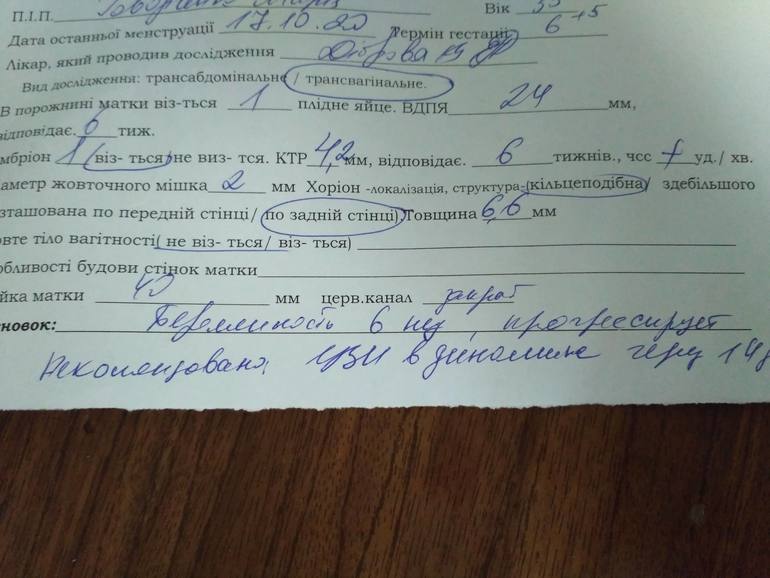 П.І.П. Вік 33
Дата останньої менструації 17.10.20 Термін гестації 6+5
Лікар, який проводив дослідження
Вид дослідження: трансабдомінальне / трансвагінальне.
В порожнині матки віз-ться 1 плідне яйце. ВДПЯ 24 мм,
відповідає. 6 тиж.
мбріон 1 (віз- ться) не виз- тся. КТР 4,2 мм, відповідає. 6 тижнів., чсс + уд./ хв.
аметр жовточного мішка 2 мм Хоріон -локалізація, структура-(кільцеподібна/ здебільшого
зташована по передній стінці/ по задній стінці). Товщина 6,6 мм
овте тіло вагітності( не віз- ться/ віз- ться)
обливості будови стінок матки
йка матки 42 мм церв.канал закрыт
новок: Беременность 6 нед, прогрессирует
Рекомендовано: УЗИ в динамике через 14 д